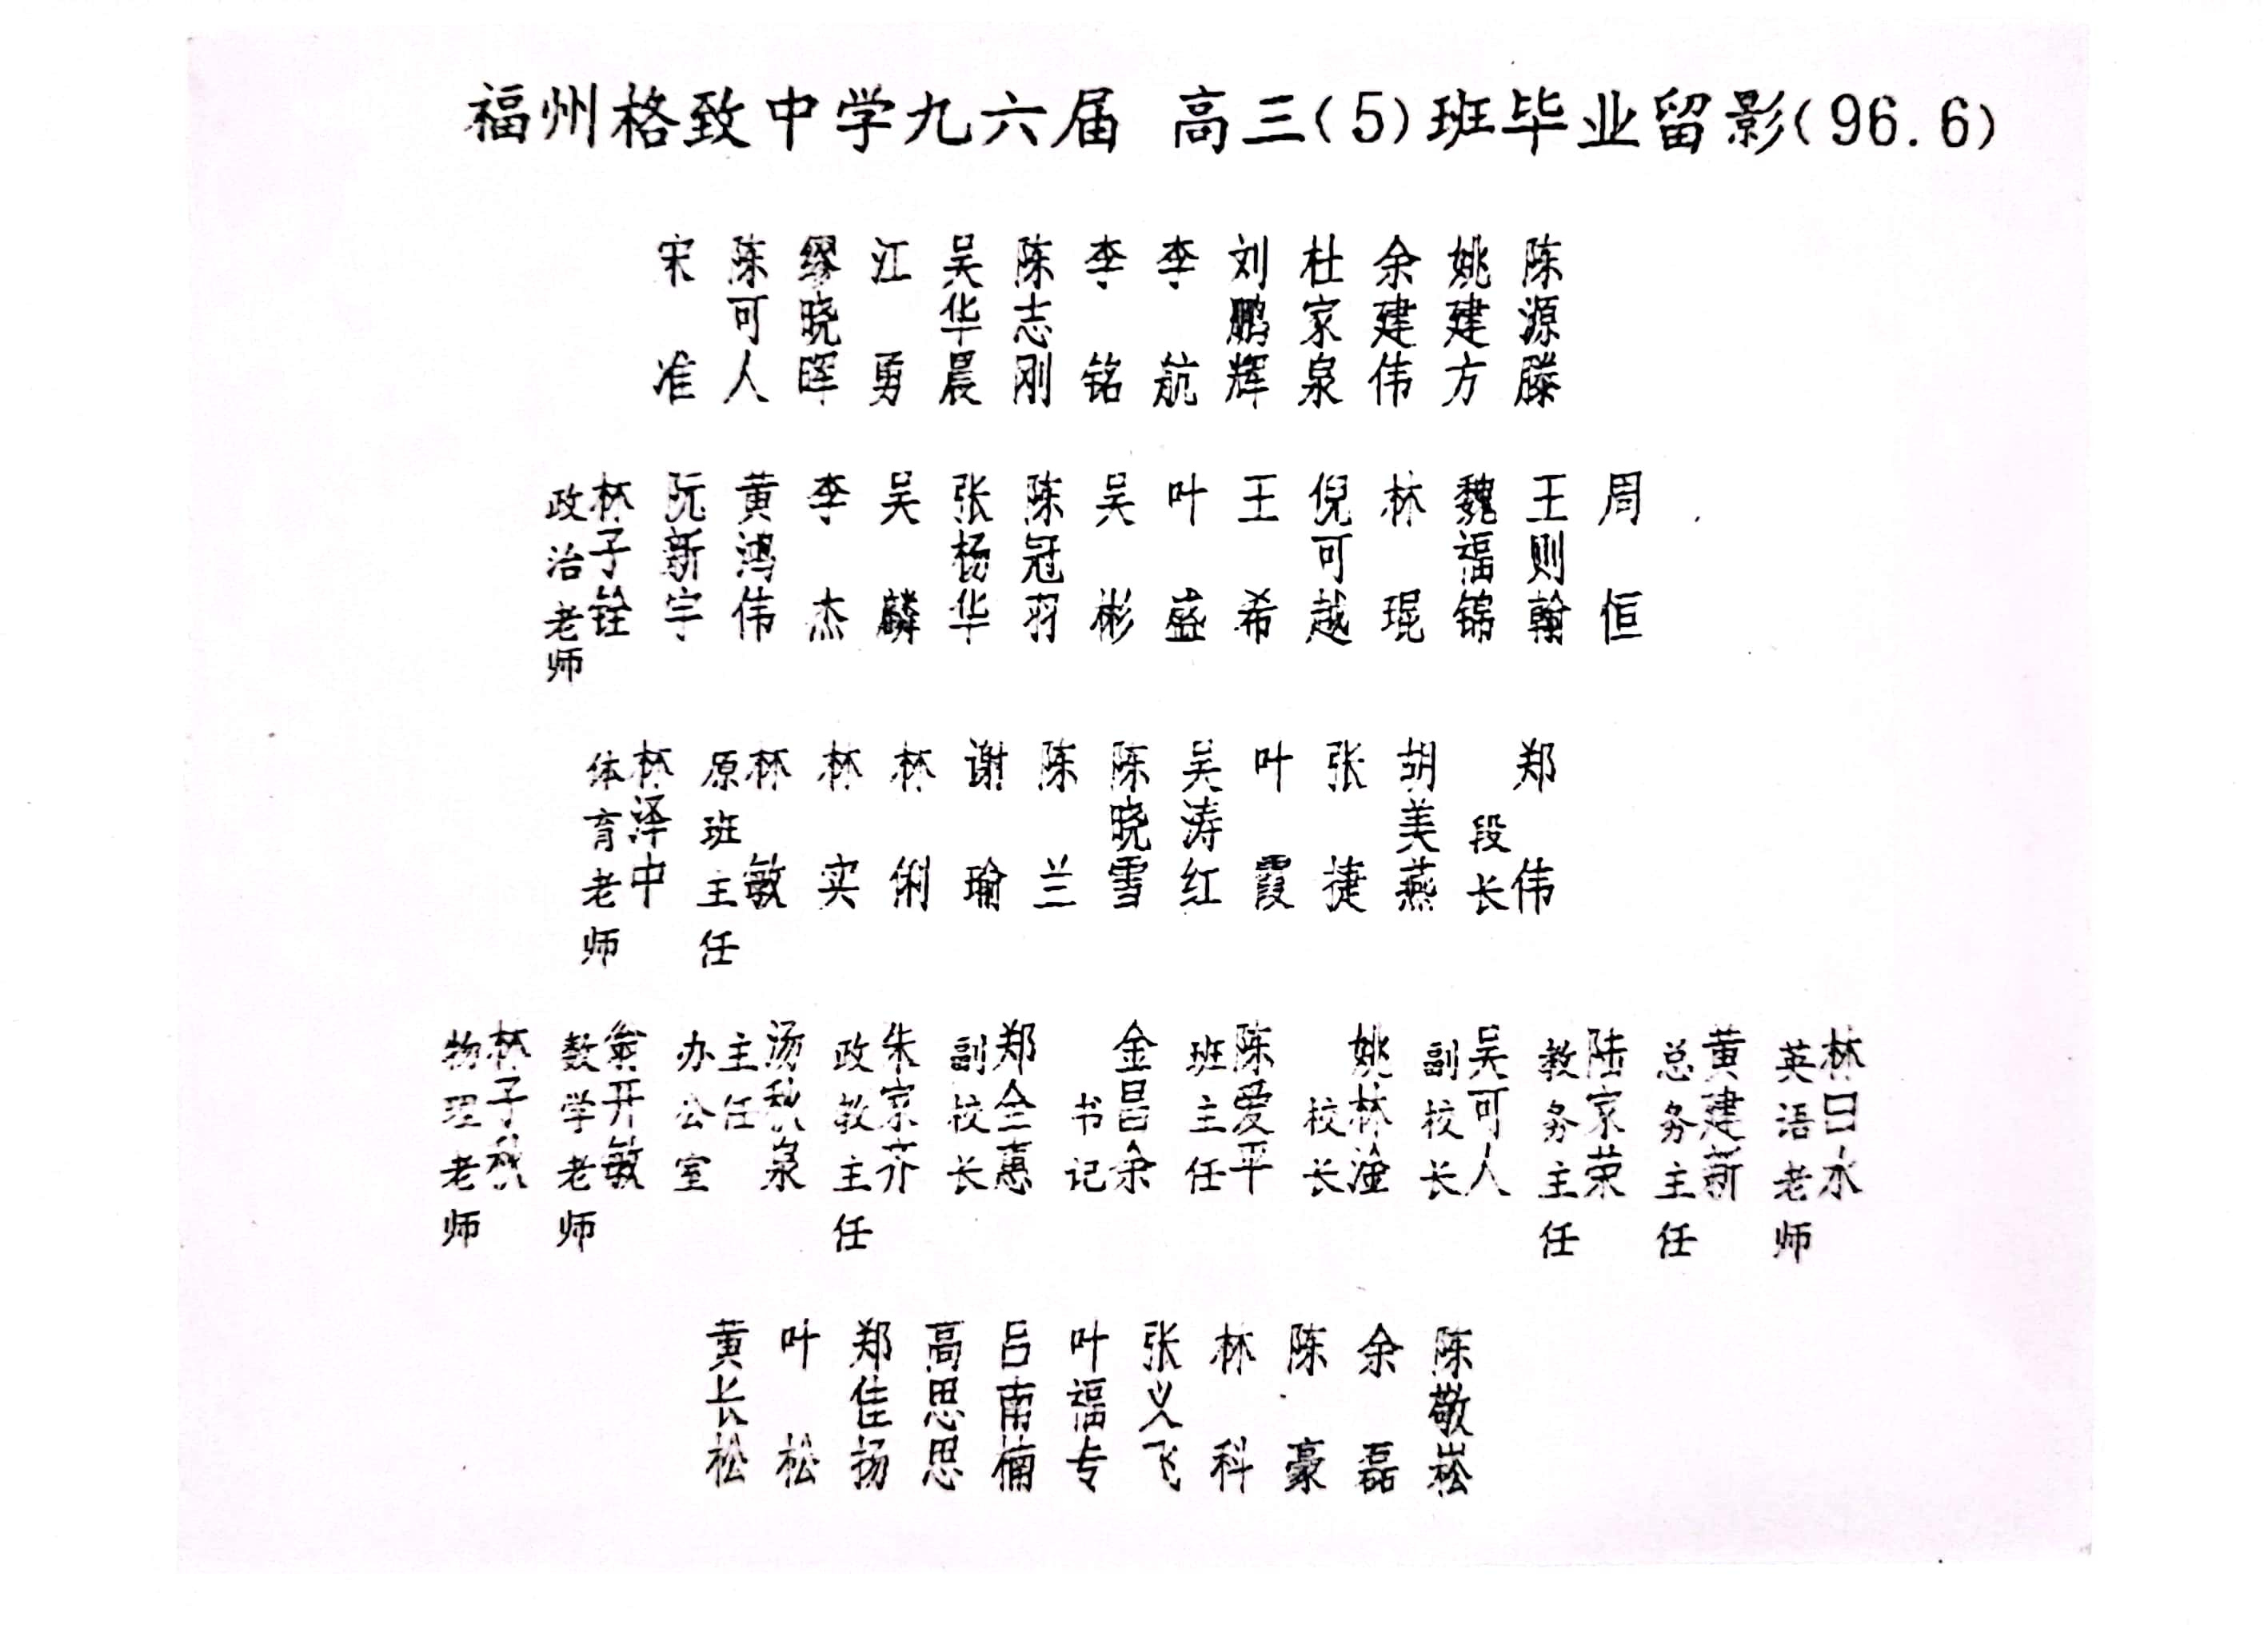 福州格致中学九六届 高三(5)班毕业留影(96.6)
宋准 陈可人 缪晓晖 江勇 吴华晨 陈志刚 李铭 李航 刘鹏辉 杜家泉 余建伟 姚建方 陈源滕
政治老师 林子铨 阮新宇 黄鸿伟 李杰 吴麟 张杨华 陈冠羽 吴彬 叶盛 王希 倪可越 林琨 魏福锦 王则翰 周恒
体育老师 林泽中 原班主任 林敏 林实 林俐 谢瑜 陈兰 陈晓雪 吴涛红 叶霞 张捷 胡美燕 段长 郑伟
物理老师 林子秋 数学老师 翁开敏 办公室主任 汤秋泉 政教主任 朱家芥 副校长 郑全惠 书记 金昌余 班主任 陈爱平 校长 姚林淦 副校长 吴可人 教务主任 陆家荣 总务主任 黄建新 英语老师 林日水
黄长松 叶松 郑佳扬 高思思 吕南楠 叶福专 张义飞 林科 陈豪 余磊 陈敬崧